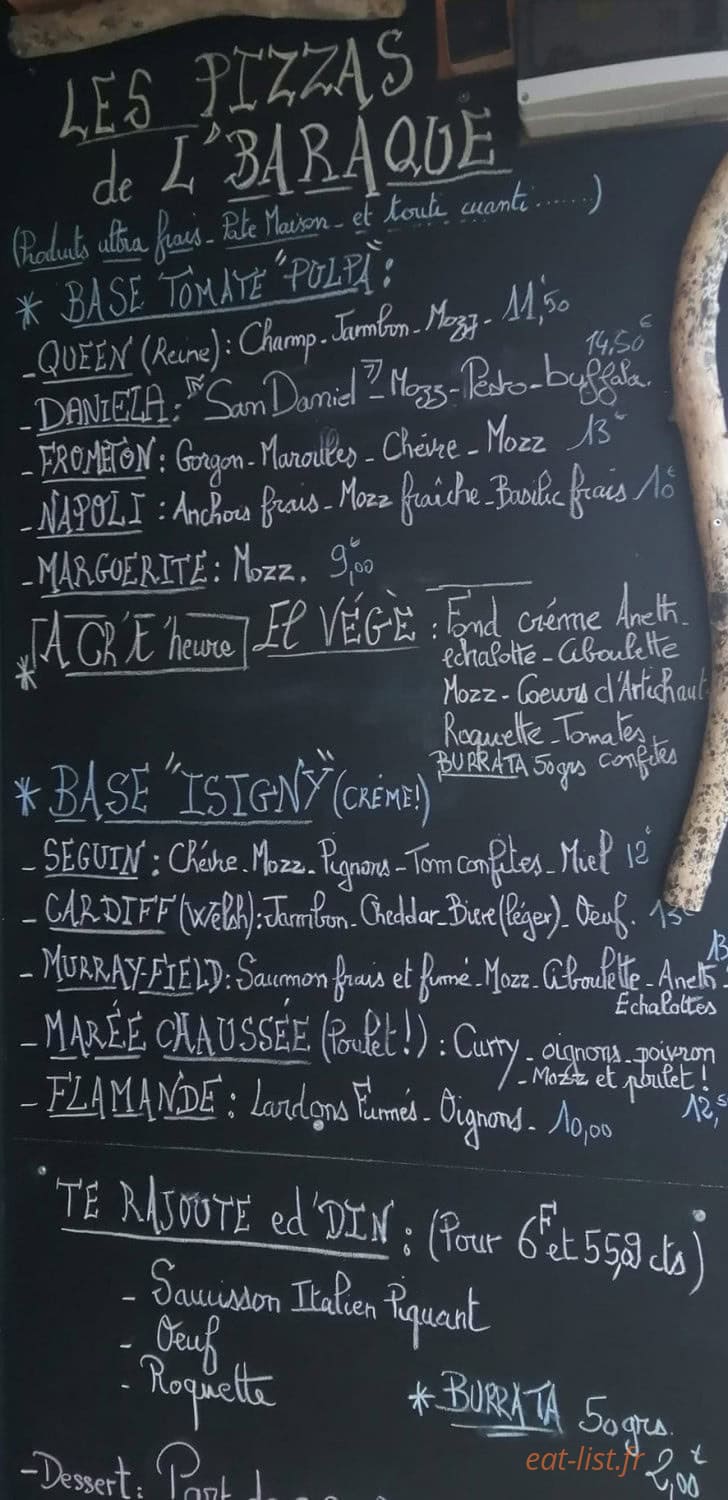 LES PIZZAS
de L'BARAQUE
(Produits ultra frais - Pate Maison - et toute cuanti......)
* BASE TOMATE "PULPA":
- QUEEN (Reine): Champ - Jambon - Mozz - 11,50
- DANIELA: "San Daniel" - Mozz - Pesto - buffala. 14,50€
- FROMETON: Gorgon - Maroilles - Chévre - Mozz 13€
- NAPOLI: Anchois frais - Mozz fraîche - Basilic frais
- MARGUERITE: Mozz. 9,00€
* A CR'E 'heure El VÉGÈ: Fond créme Aneth -
echalotte - Ciboulette
Mozz - Coeurs d'Artichaut
Roquette - Tomates
BURRATA 50grs confites
* BASE "ISIGNY" (CRÉME!)
- SEGUIN: Chévre - Mozz - Pignons - Tom confites - Miel 12€
- CARDIFF (Welsh): Jambon - Cheddar - Biere (léger) - Oeuf. 13€
- MURRAY-FIELD: Saumon frais et fumé - Mozz - Ciboulette - Aneth - 13
Échalottes
- MARÉE CHAUSSÉE (Poulet!): Curry - oignons - poivron
- Mozz et poulet! 12,5
- FLAMANDE: Lardons Fumés - Oignons - 10,00
TE RAJOUTE ed'DIN: (Pour 6F et 55,9 cts)
- Saucisson Italien Piquant
- Oeuf
- Roquette
* BURRATA 50grs.
2,00€
eat-list.fr
- Dessert: Part